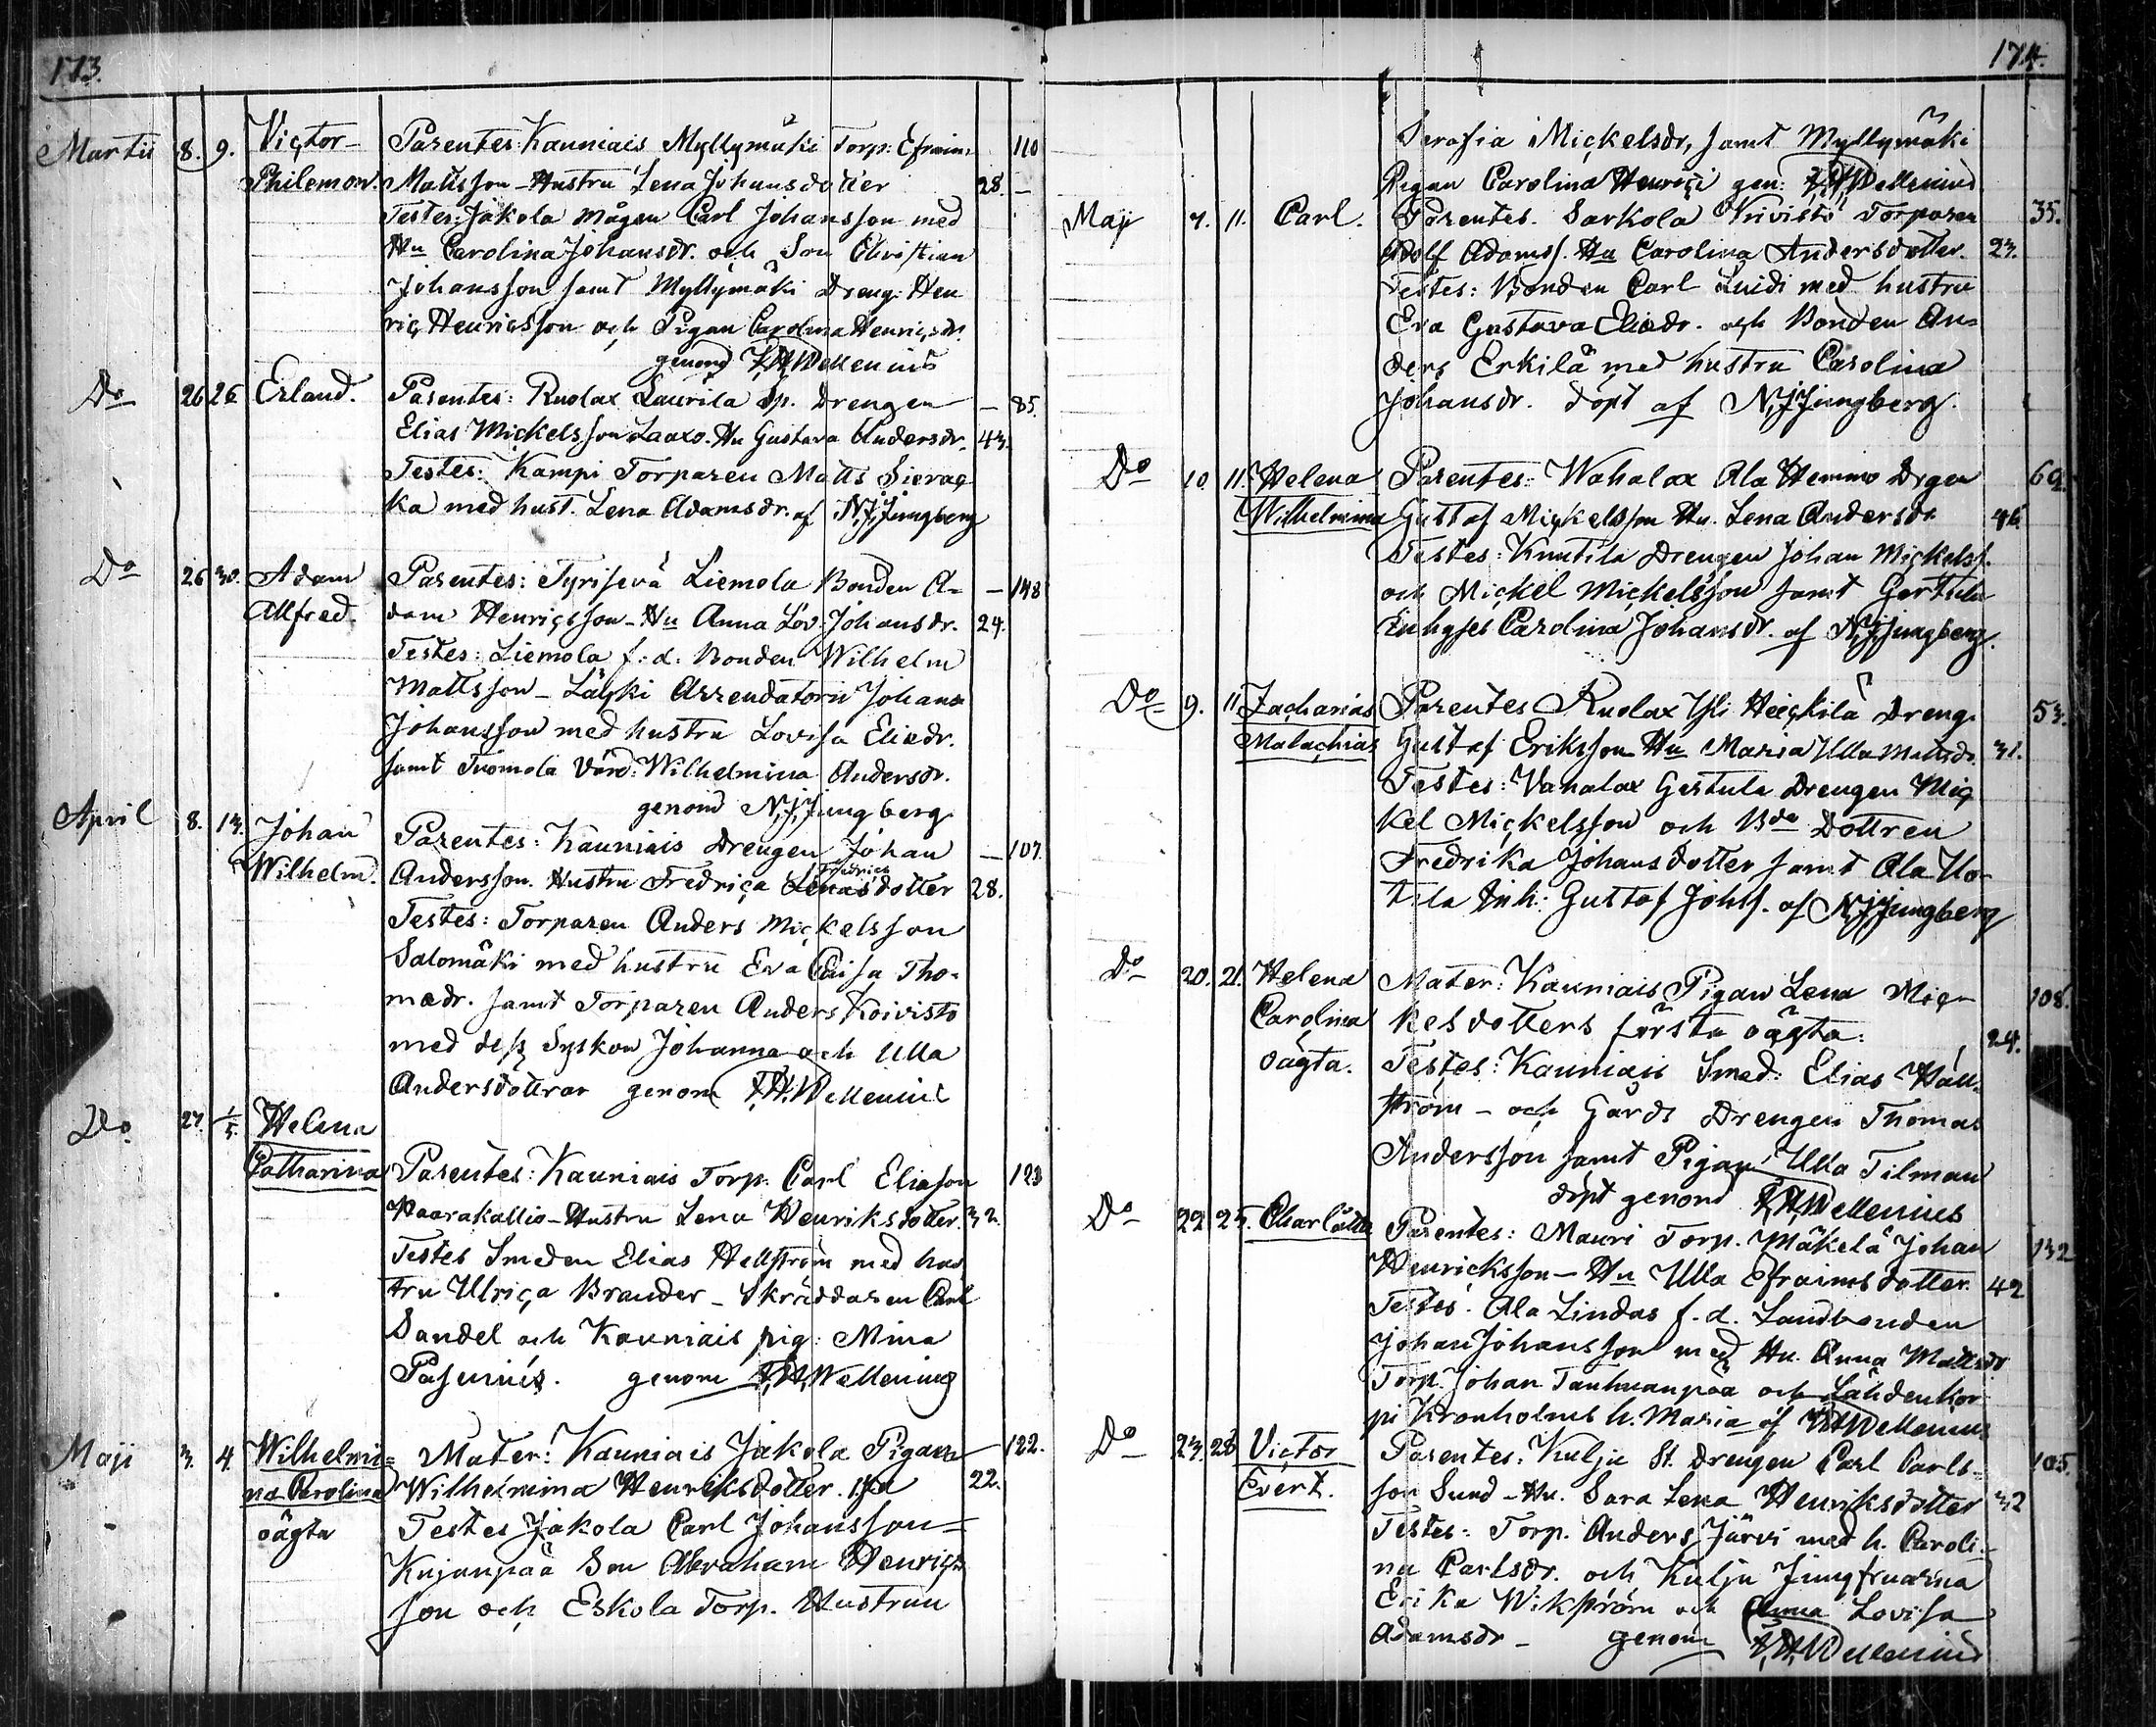 173.
Martii 8. 9. Victor- Parentes: Kauniais Myllymäki Torp. Efraim 110
Philemon. Mattsson - Hustru Lena Johansdotter 28. -
Testes: Jakola Mågen Carl Johansson med
Hu Carolina Johansdr. och Son Christian
Johansson samt Myllymäki Dreng: Hen
ric Henricsson och Pigan Carolina Henricsdr.
genom F,H,Wellenius
Do 26 26 Erland. Parentes: Ruolax Laurila Sp. Drengen - 85.
Elias Mickelsson Laaxo. Hu Gustava Andersdr. 43.
Testes: Kampi Torparen Matts Sierac
ka med hust. Lena Adamsdr. af N,J,Jungberg
Do 26 30. Adam Parentes: Tyrisevä Liemola Bonden A= - 148
Alfred. dam Henricsson - Hu Anna Lov. Johansdr. 24.
Testes: Liemola f.d. Bonden Wilhelm
Mattsson - Arrendatorn Johan
Johansson med hustru Lovisa Eliædr.
samt Tuomola Värd: Wilhelmina Andersdr.
genom N,J,Jungberg
April 8. 13. Johan Parentes: Kauniais Drengen Johan - 107.
Wilhelm. Andersson. Hustru Fredrica Fredrics dotter 28.
Testes: Torparen Anders Mickelsson
Salomäki med hustru Eva Caisa Tho-
mædr. samt Torparen Anders Koivisto
med dess Syskon Johanna och Ulla
Andersdöttrar genom F.H.Wellenius
Do 27. 1/5. Helena
Catharina Parentes: Kauniais Torp. Carl Eliason 123
Waarakallio - Hustru Lena Henriksdotter. 32.
Testes Smeden Elias Hellström med hus
tru Ulrica Brander - Skräddaren Carl
Sandel och Kauniais pig: Mina
genom F,H,Wellenius
Maji 3. 4. Wilhelmi= Mater: Kauniais Jakola Pigan - 122.
na Carolina Wilhelmina Henriksdotter. 1sta 22.
oägta Testes Jakola Carl Johansson =
Kujanpää Son Abraham Henrics
son och Eskola Torp. Hustrun
174.
Serafia Mickelsdr, samt Myllymäki
Pigan Carolina Henrici gen: F,H,Wellenius
Maji 7. 11. Carl. Parentes. Sarkola Krivistö Torparen 35.
Adolf Adams s. Hu Carolina Andersdotter. 23.
Testes: Bonden Carl Luidi med hustru
Eva Gustava Eliædr. och Bonden An=
ders Erkilä med hustru Carolina
Johansdr. döpt af N,J,Jungberg.
Do 10 11. Helena Parentes: Wahalax Ala Hemmo Drgen 69.
Wilhelmina Gustaf Mickelsson Hu. Lena Andersdr. 46.
Testes: Knutila Drengen Johan Mickelss.
och Mickel Mickelsson samt Gertula
Inhyses Carolina Johansdr. af N,J,Jungberg.
Do 9. 11 Zacharias Parentes Ruolax Yli Heickilä Dreng. 53.
Malachias Gustaf Eriksson Hu Maria Ulla Mattsdr. 31.
Testes: Vahalax Gertula Drengen Mic
kel Mickelsson och Bda Dottren
Fredrika Johansdotter samt Ala Ho-
tila Inh: Gustaf Johss. af N,J,Jungberg
Do 20. 21. Helena Mater: Kauniais Pigan Lena Mic= 108.
Carolina kelsdotters första oägta: 24.
oägta. Testes: Kauniais Smed: Elias Häll=
ström - och Gårds Drengen Thomas
Andersson samt Pigan Ulla Tilman
döpt genom F,H,Wellenius
Do 22 25. Charlotta Parentes: Mauri Torp. Mäkelä Johan 132
Henricksson - Hu Ulla Efraimsdotter. 42
Testes: Ala Lindas f.d. Landbonden
Johan Johansson med Hu. Anna Mattsdr
Torp. Johan Tanhuanpää och Lähdenkor
pi Kronholms h. Maria af F,H,Wellenius
Do 23. 28 Victor Parentes. Kulju St. Drengen Carl Carls- 105.
Evert. son Sund - Hu. Sara Lena Henriksdotter 32
Testes: Torp. Anders Järvi med h. Caroli-
na Carlsdr. och Kulju Jungfruarna
Erika Wikström och Anna Lovisa
Adamsdr - genom F,H,Wellenius